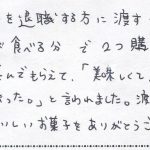 を退職する方に渡す
が食べる分で2つ購
んでもらえて、「美味しくて
ったの」と言われました。渡
いしいお菓子をありがとうご